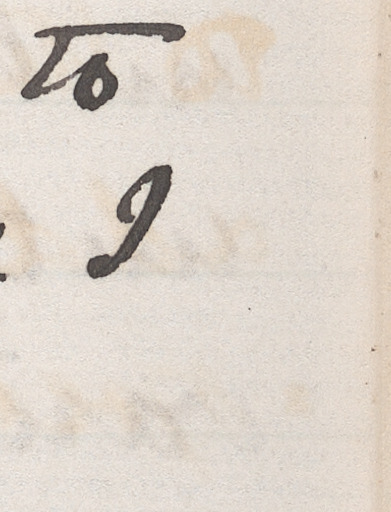 To
I